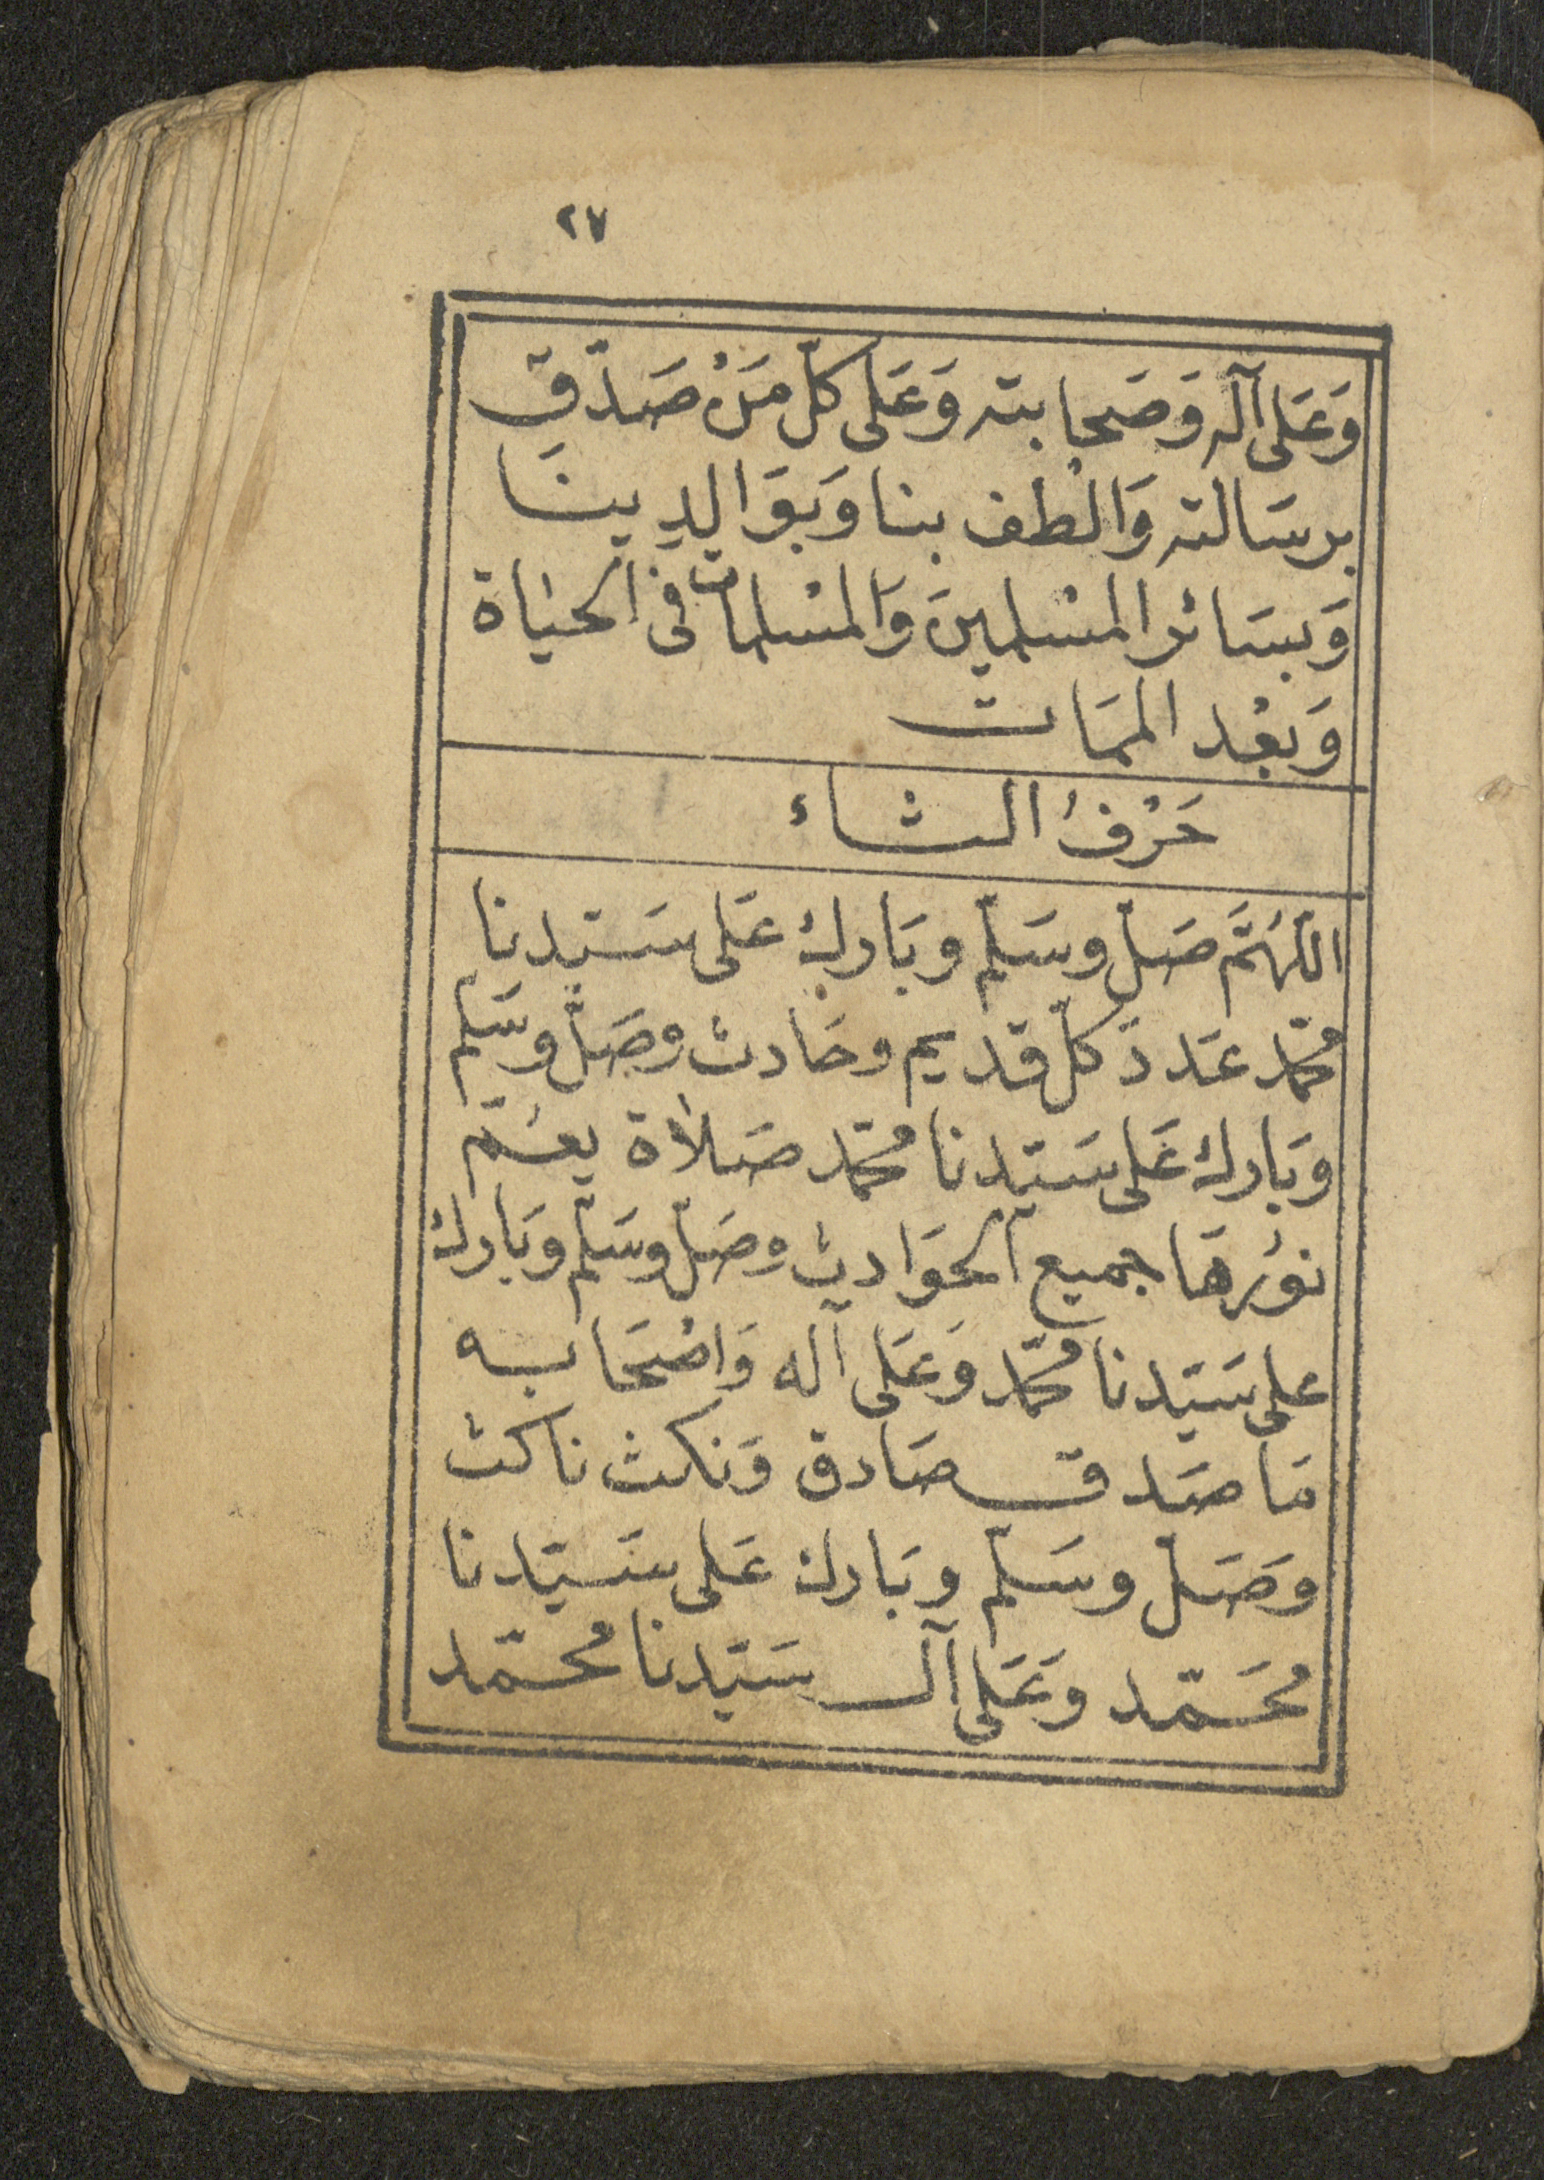 ٢٧
وَعَلى آله وَصَحابته وَعَلى كلّ مَنْ صَدّق
برسَالته وَالْطف بنا وَبوَالِدِينَا
وَبسَائر المسْلمينَ وَالمسْلمات في الحيَاة
وَبعْد الممَات
حَرْفُ الثاء
اللّهمَّ صَلّ وسَلّم وبَارك عَلى سَيّدنا
محمّد عَددَ كلّ قديم وحَادث وصَلّ وسَلّم
وبَارك عَلى سَيّدنا محمّد صَلاة يعُمّ
نورُهَا جميع الحوَادث وصَلّ وسَلّم وبَارك
على سَيّدنا محمّد وَعَلى آله وَاصْحَابه
مَا صَدق صَادق وَنكث ناكث
وصَلّ وسَلّم وبَارك عَلى سَيّدنا
محَمّد وَعَلى آل سَيّدنا محمّد